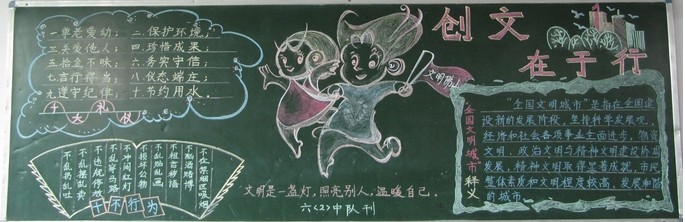 创文
在于行
一尊老爱幼；二保护环境；
三关爱他人；四珍惜成果；
五拾金不昧；六务实守信；
七言行得当；八仪态端庄；
九遵守纪律；十节约用水。
十大礼仪
不乱扔乱吐
不乱摆乱卖
不违规停放
不乱穿马路
不冲闯红灯
不损坏公物
不乱贴乱画
不粗言秽语
不酗酒赌博
不在禁烟区吸烟
十不行为
文明是一盏灯，照亮别人，温暖自己。
六（2）中队刊
全国文明城市释义
"全国文明城市"是指在全国建
设新的发展阶段，坚持科学发展观，
经济和社会各项事业全面进步，物资
文明，政治文明与精神文明建设协调
发展，精神文明取得显著成就，市民
整体素质和文明程度较高，发展和谐
的城市。